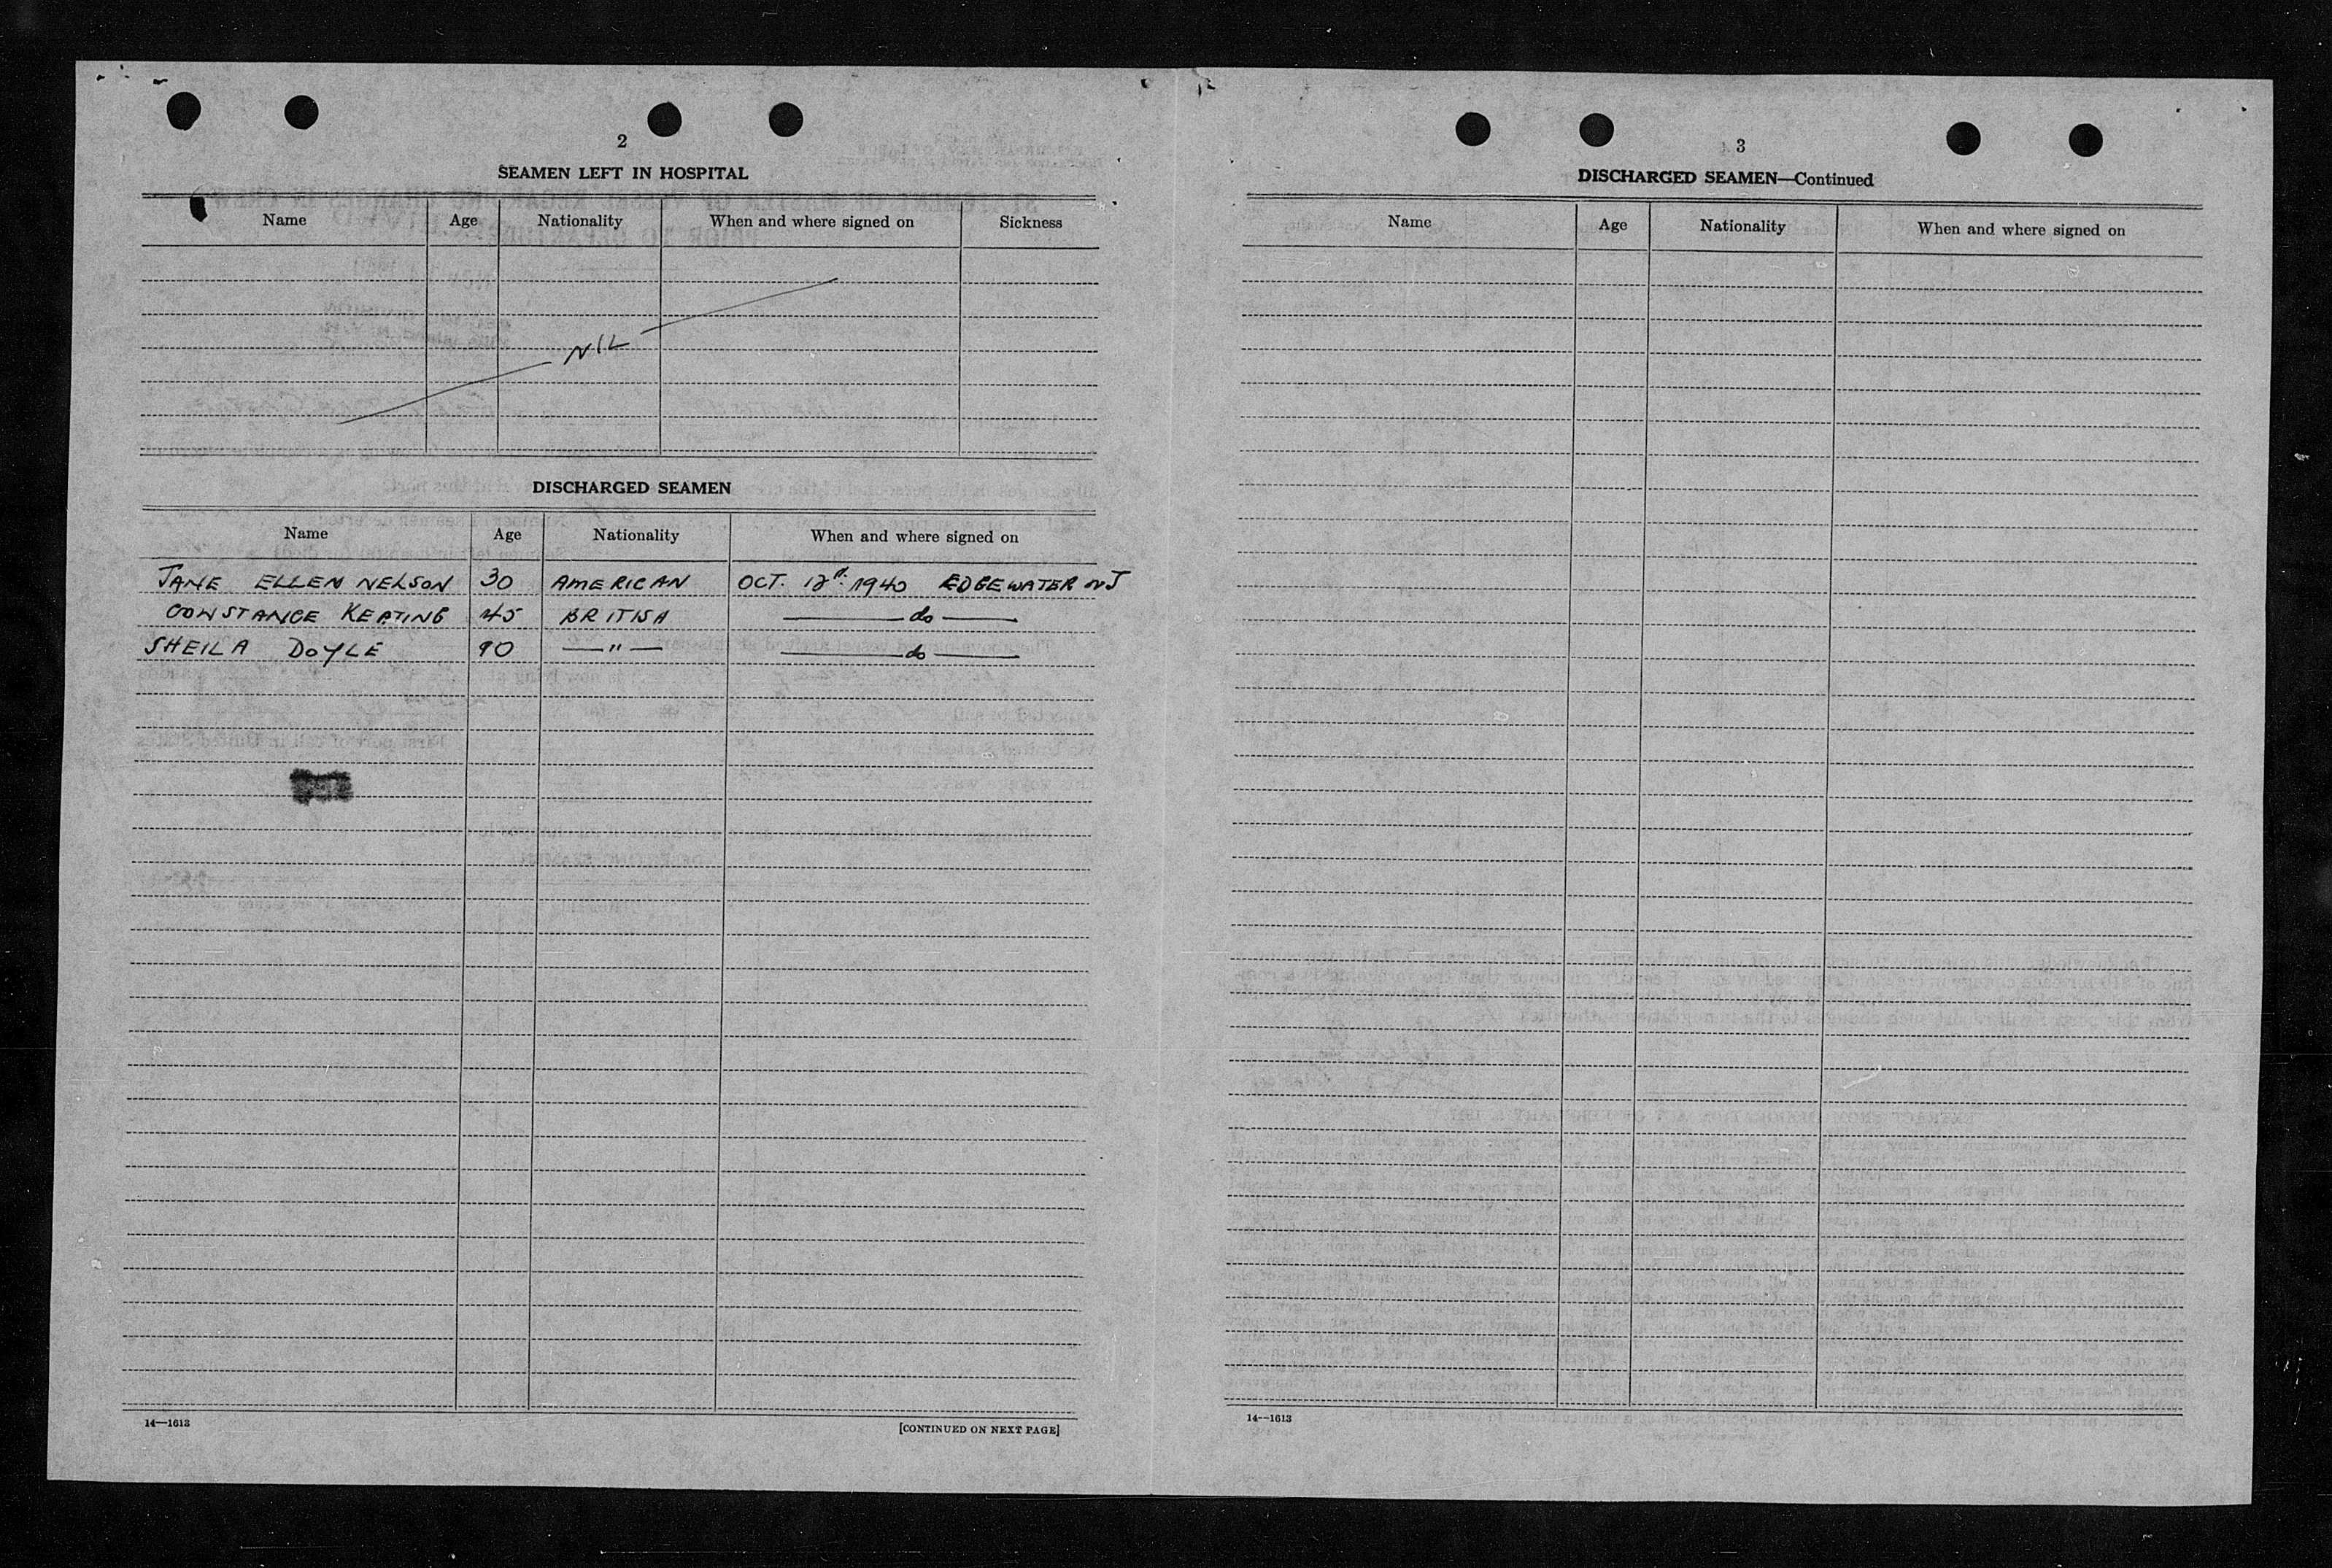 2
SEAMEN LEFT IN HOSPITAL
Name Age Nationality When and where signed on Sickness
NIL
DISCHARGED SEAMEN
Name Age Nationality When and where signed on
JANE ELLEN NELSON 30 AMERICAN OCT. 12th: 1940 EDGEWATER NJ
CONSTANCE KEATING 45 BRITISH — do —
SHEILA DOYLE 90 — " — — do —
14—1613
[CONTINUED ON NEXT PAGE]
3
DISCHARGED SEAMEN—Continued
Name Age Nationality When and where signed on
14—1613